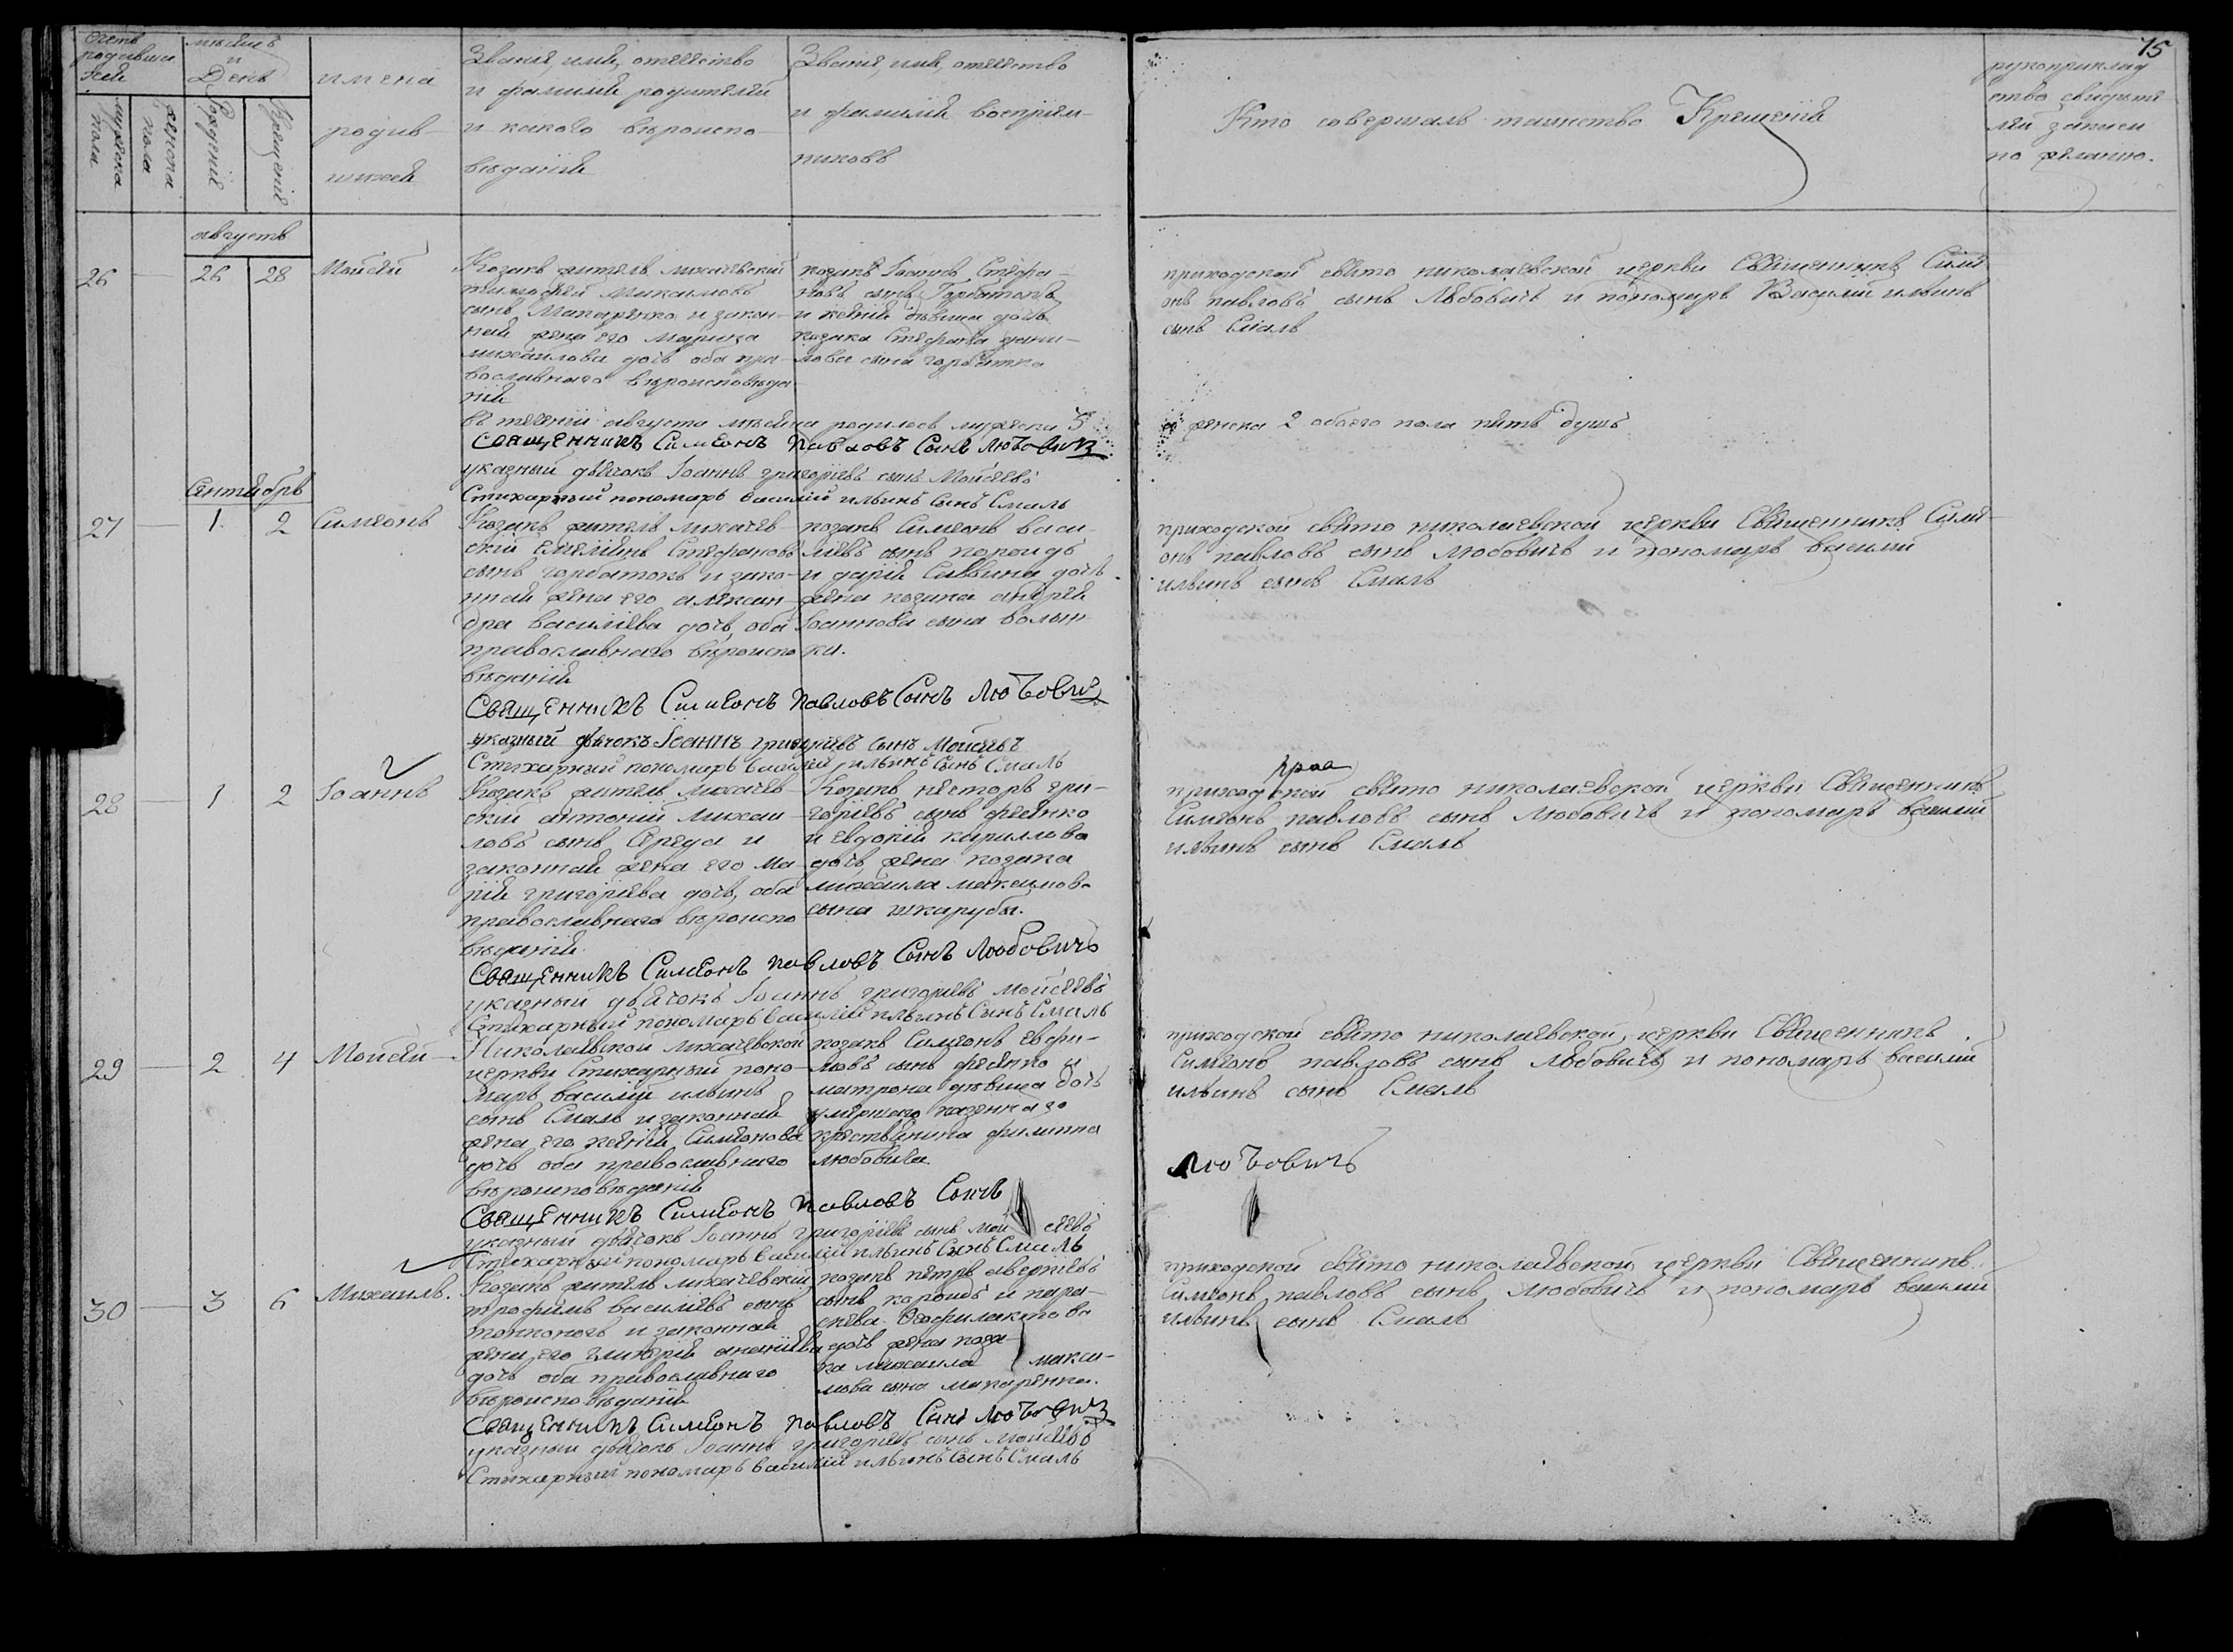 счетъ
родивши
хся
мѣсяцъ
и
День
имена
родив-
шихся
Званіе, имя, отчество
и фамилія родителей
и какого вѣроиспо-
вѣданія
Званіе, имя, отчество
и фамилія воспріем-
никовъ
Кто совершалъ таинство Крещенія
рукоприклад
ство свидѣте
лей записи
по желанію.
15
мужеска
пола
женска
пола
Рожденія
Крещенія
августъ
26 — 26 28 Мойсей
Козакъ житель лихачевскій
тимофей Максимовъ
сынъ Макаренко и закон-
ная жена его Марина
михайлова дочь оба пра-
вославнаго вѣроисповѣда
нія
козакъ Іоаннъ Стефа-
новъ сынъ Горбатокъ
и ксенія дѣвица дочь
козака Стефана дани-
лова сына горбатка
приходской свято николаевской церкви Священникъ Симе
онъ павловъ сынъ Любовичъ и пономарь Василій ильинъ
сынъ Смаль
въ теченіи августа мѣсяца родилось мужеска 3
женска 2 обоего пола пять душъ
Священникъ Симеонъ Павловъ Сынъ Любовичъ
указный дьячокъ Іоаннъ григоріевъ сынъ Мойсеевъ
Стихарный пономарь василій ильинъ Сынъ Смаль
Сентябрь
27 — 1 2 Симеонъ
Козакъ житель лихачев-
скій Емеліанъ Стефановъ
сынъ горбатокъ и зако-
нная жена его алексан-
дра василіева дочь, оба
православнаго вѣроиспо
вѣданія
козакъ Симеонъ васи-
ліевъ сынъ пороидъ
и дарія Саввина дочь
жена козака андрея
Іоаннова сына волын-
ки.
приходской свято николаевской церкви Священникъ Симе-
онъ павловъ сынъ Любовичъ и пономарь василій
ильинъ сынъ Смаль
Священникъ Симеонъ Павловъ Сынъ Любовичъ
указный дьячокъ Іоаннъ григоріевъ сынъ Мойсеевъ
Стихарный пономарь василій ильинъ Сынъ Смаль
28 — 1 2 Іоаннъ
Козакъ житель лихачев-
скій антоній михаи-
ловъ сынъ Середа и
законная жена его ма-
рія григоріева дочь, оба
православнаго вѣроиспо
вѣданія
Козакъ несторъ гри-
горіевъ сынъ фесенко
и евдокія кириллова
дочь, жена козака
михаила максимова
сына шкарубы.
приходской свято николаевской церкви Священникъ
Симеонъ павловъ сынъ Любовичъ и пономарь василій
ильинъ сынъ Смаль
Священникъ Симеонъ Павловъ Сынъ Любовичъ
указный дьячокъ Іоаннъ григоріевъ мойсеевъ
Стихарный пономарь василій ильинъ Сынъ Смаль
29 — 2 4 Мойсей
Николаевской лихачевской
церкви Стихарный поно-
марь василій ильинъ
сынъ Смаль и законная
жена его ксенія Симеонова
дочь оба православнаго
вѣроисповѣданія
козакъ Симеонъ евфи-
мовъ сынъ фесенко и
матрона дѣвица дочь
умершаго казеннаго
крестьянина филиппа
любовича.
приходской свято николаевской церкви Священникъ
Симеонъ павловъ сынъ Любовичъ и пономарь василій
ильинъ сынъ Смаль
Священникъ Симеонъ Павловъ Сынъ
Любовичъ
указный дьячокъ Іоаннъ григоріевъ сынъ мойсеевъ
Стихарный пономарь василій ильинъ Сынъ Смаль
30 — 3 6 Михаилъ.
Козакъ житель лихачевскій
трофимъ василіевъ сынъ
тонконогъ и законная
жена его гликерія ананіева
дочь оба православнаго
вѣроисповѣданія
козакъ петръ аверкіевъ
сынъ пороидъ и пара-
скева Феофилактова
дочь жена коза-
ка михаила макси-
мова сына макаренка.
приходской свято николаевской церкви Священникъ
Симеонъ павловъ сынъ Любовичъ и пономарь василій
ильинъ сынъ Смаль
Священникъ Симеонъ Павловъ Сынъ Любовичъ
указный дьячокъ Іоаннъ григоріевъ сынъ Мойсеевъ
Стихарный пономарь василій ильинъ Сынъ Смаль